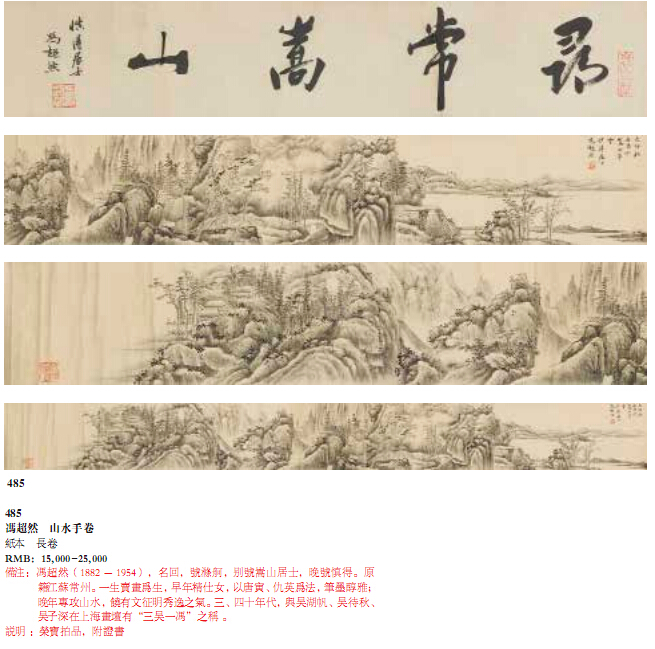 尋常嵩山
慎得居士
馮超然
485
485
馮超然 山水手卷
紙本 長卷
RMB: 15,000-25,000
備注:馮超然(1882 — 1954),名回,號滌舸,别號嵩山居士,晚號慎得。原
籍江蘇常州。一生賣畫爲生,早年精仕女,以唐寅、仇英爲法,筆墨醇雅;
晚年專攻山水,饒有文征明秀逸之氣。三、四十年代,與吴湖帆、吴待秋、
吴子深在上海畫壇有“三吴一馮”之稱 。
説明 :榮寶拍品,附證書